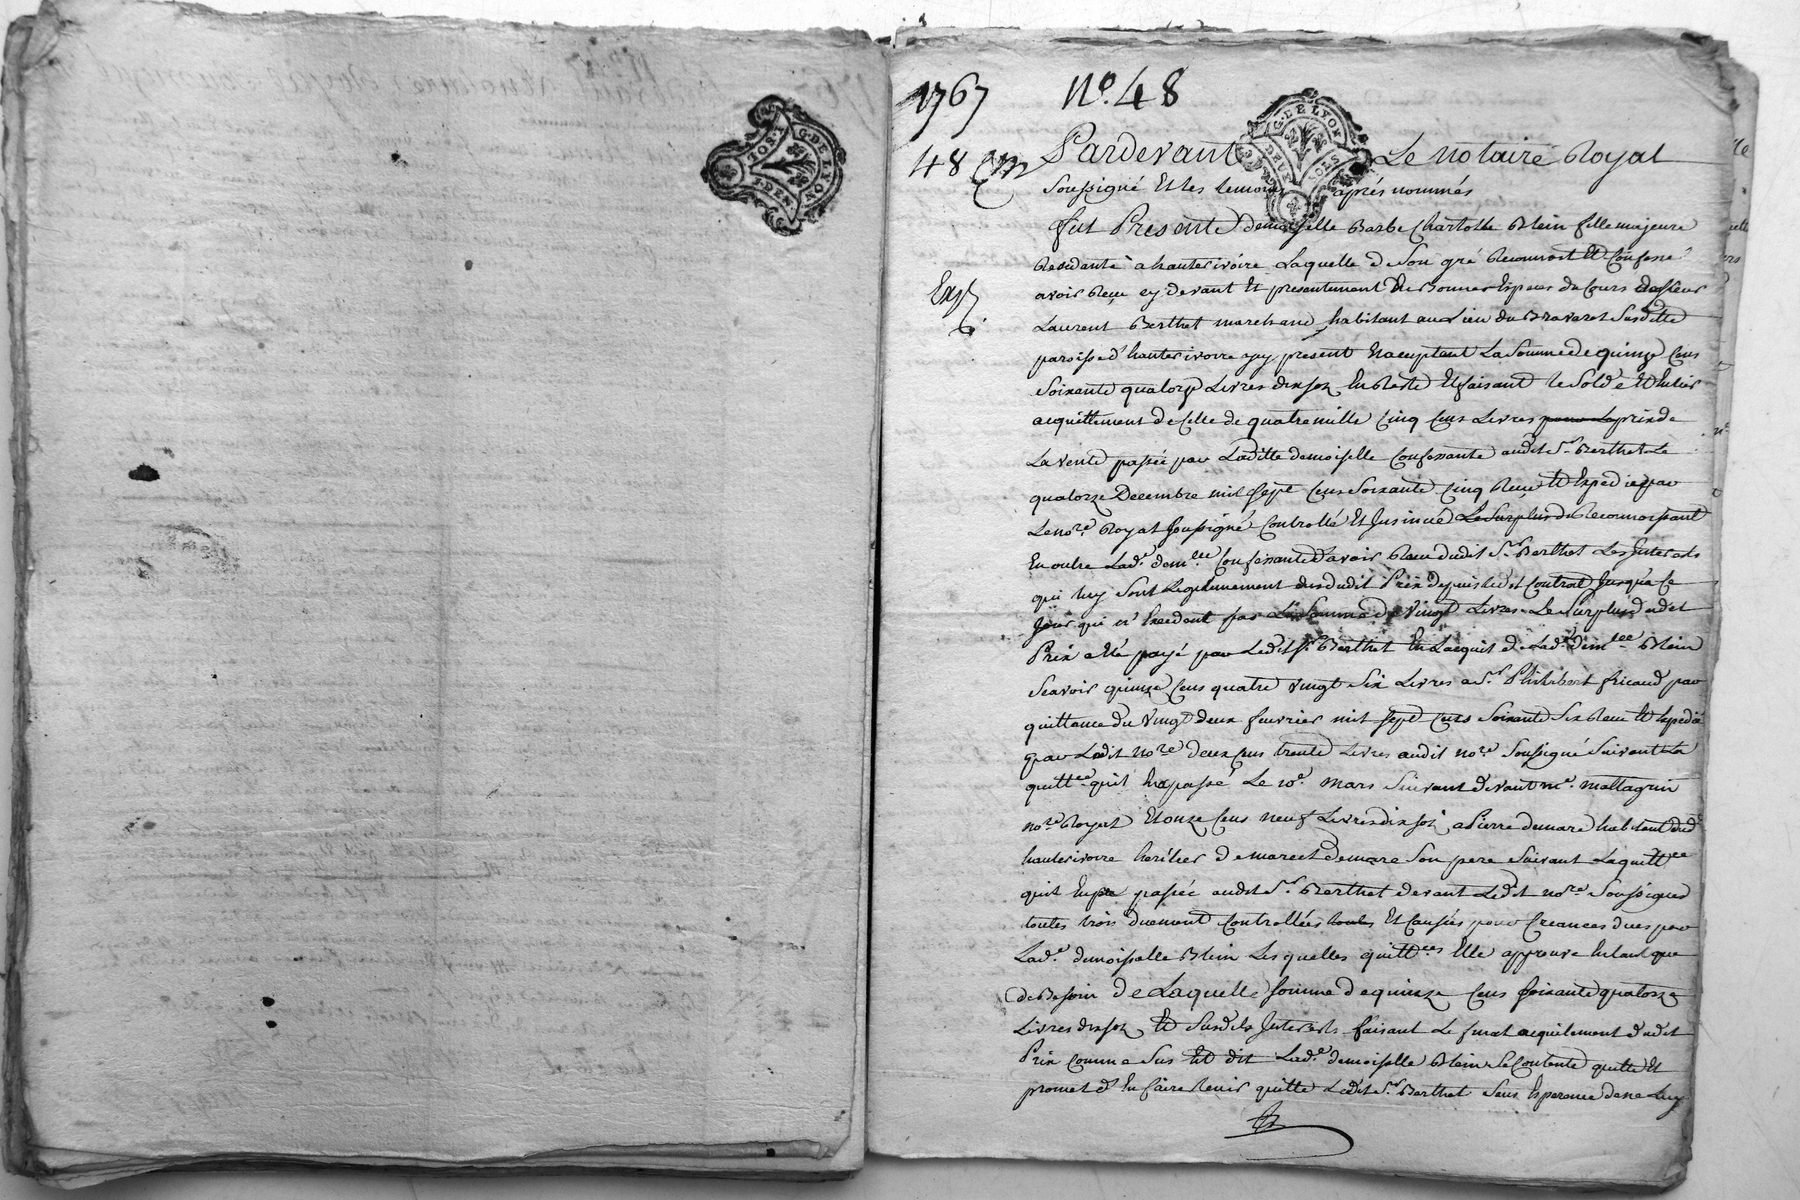 1767 No. 48
48
Pardevant Le Notaire Royal
Soussigné Et les temoins après nommés
fut Presente demoiselle Barbe Charlotte Blein fille majeure
Residante a hauterivoire Laquelle de Son gré Reconnoit Et Confesse
avoir Reçu cy devant Et presentement En Bonnes Especes du Cours de Sieur
Exp.
Laurent Berthet marchand habitant au Lieu du Bravaret Susditte
paroisse d'hauterivoire icy present Et acceptant La Somme de quinze Cens
Soixante quatorze Livres dix sols En Reste Et faisant le Solde Et Entier
acquittement de Celle de quatre mille Cinq Cens Livres pour Le prix de
La vente passée par Laditte demoiselle Confessante audit Sr. Berthet Le
quatorze Decembre mil Sept Cens Soixante Cinq Reçu Et Expedié par
Le nore. Royal Soussigné Controllé Et Insinué Le Surplus Reconnoissant
En outre Lade. demlle Confessante avoir Reçu dudit Sr. Berthet Les Interests
qui luy Sont Legitimement dus dudit Prix depuis ledit Contrat Jusqu'a Ce
Jour qui n'Excedent pas La Somme de Vingt Livres Le Surplus dudit
Prix a Eté payé par Ledit Sr Berthet En L'acquit de Lade. demlle Blein
Scavoir quinze Cens quatre vingt Six Livres a Sr. Philibert fricaud par
quittance du Vingt deux fevrier mil Sept Cens Soixante Six Reçue Et Expediée
par Ledit nore deux Cens trente Livres audit nore Soussigné Suivant La
quittce qu'il En a passé Le 10e. Mars Suivant devant me. mallagrin
nore Royal Et onze Cens neuf Livres dix sols a Pierre demare habitant dude
hauterivoire heritier de marcet demare Son pere Suivant La quittce
qu'il En a passée audit Sr. Berthet devant Ledit nore Soussigné
toutes trois duement Controllées toutes Et Causées pour Creances dues par
Lade. demoiselle Blein Lesquelles quittces Elle approuve En tant que
de Besoin de Laquelle Somme de quinze Cens Soixante quatorze
Livres dix sols Et Susdits Interests faisant Le final acquitement dudit
Prix Comme Sus Est dit Lade demoiselle Blein Se Contente quitte Et
promet d'En faire tenir quitte Ledit Sr. Berthet Sans Esperance de ne Luy
G. DE LYON
DEUX SOLS
G. DE LYON